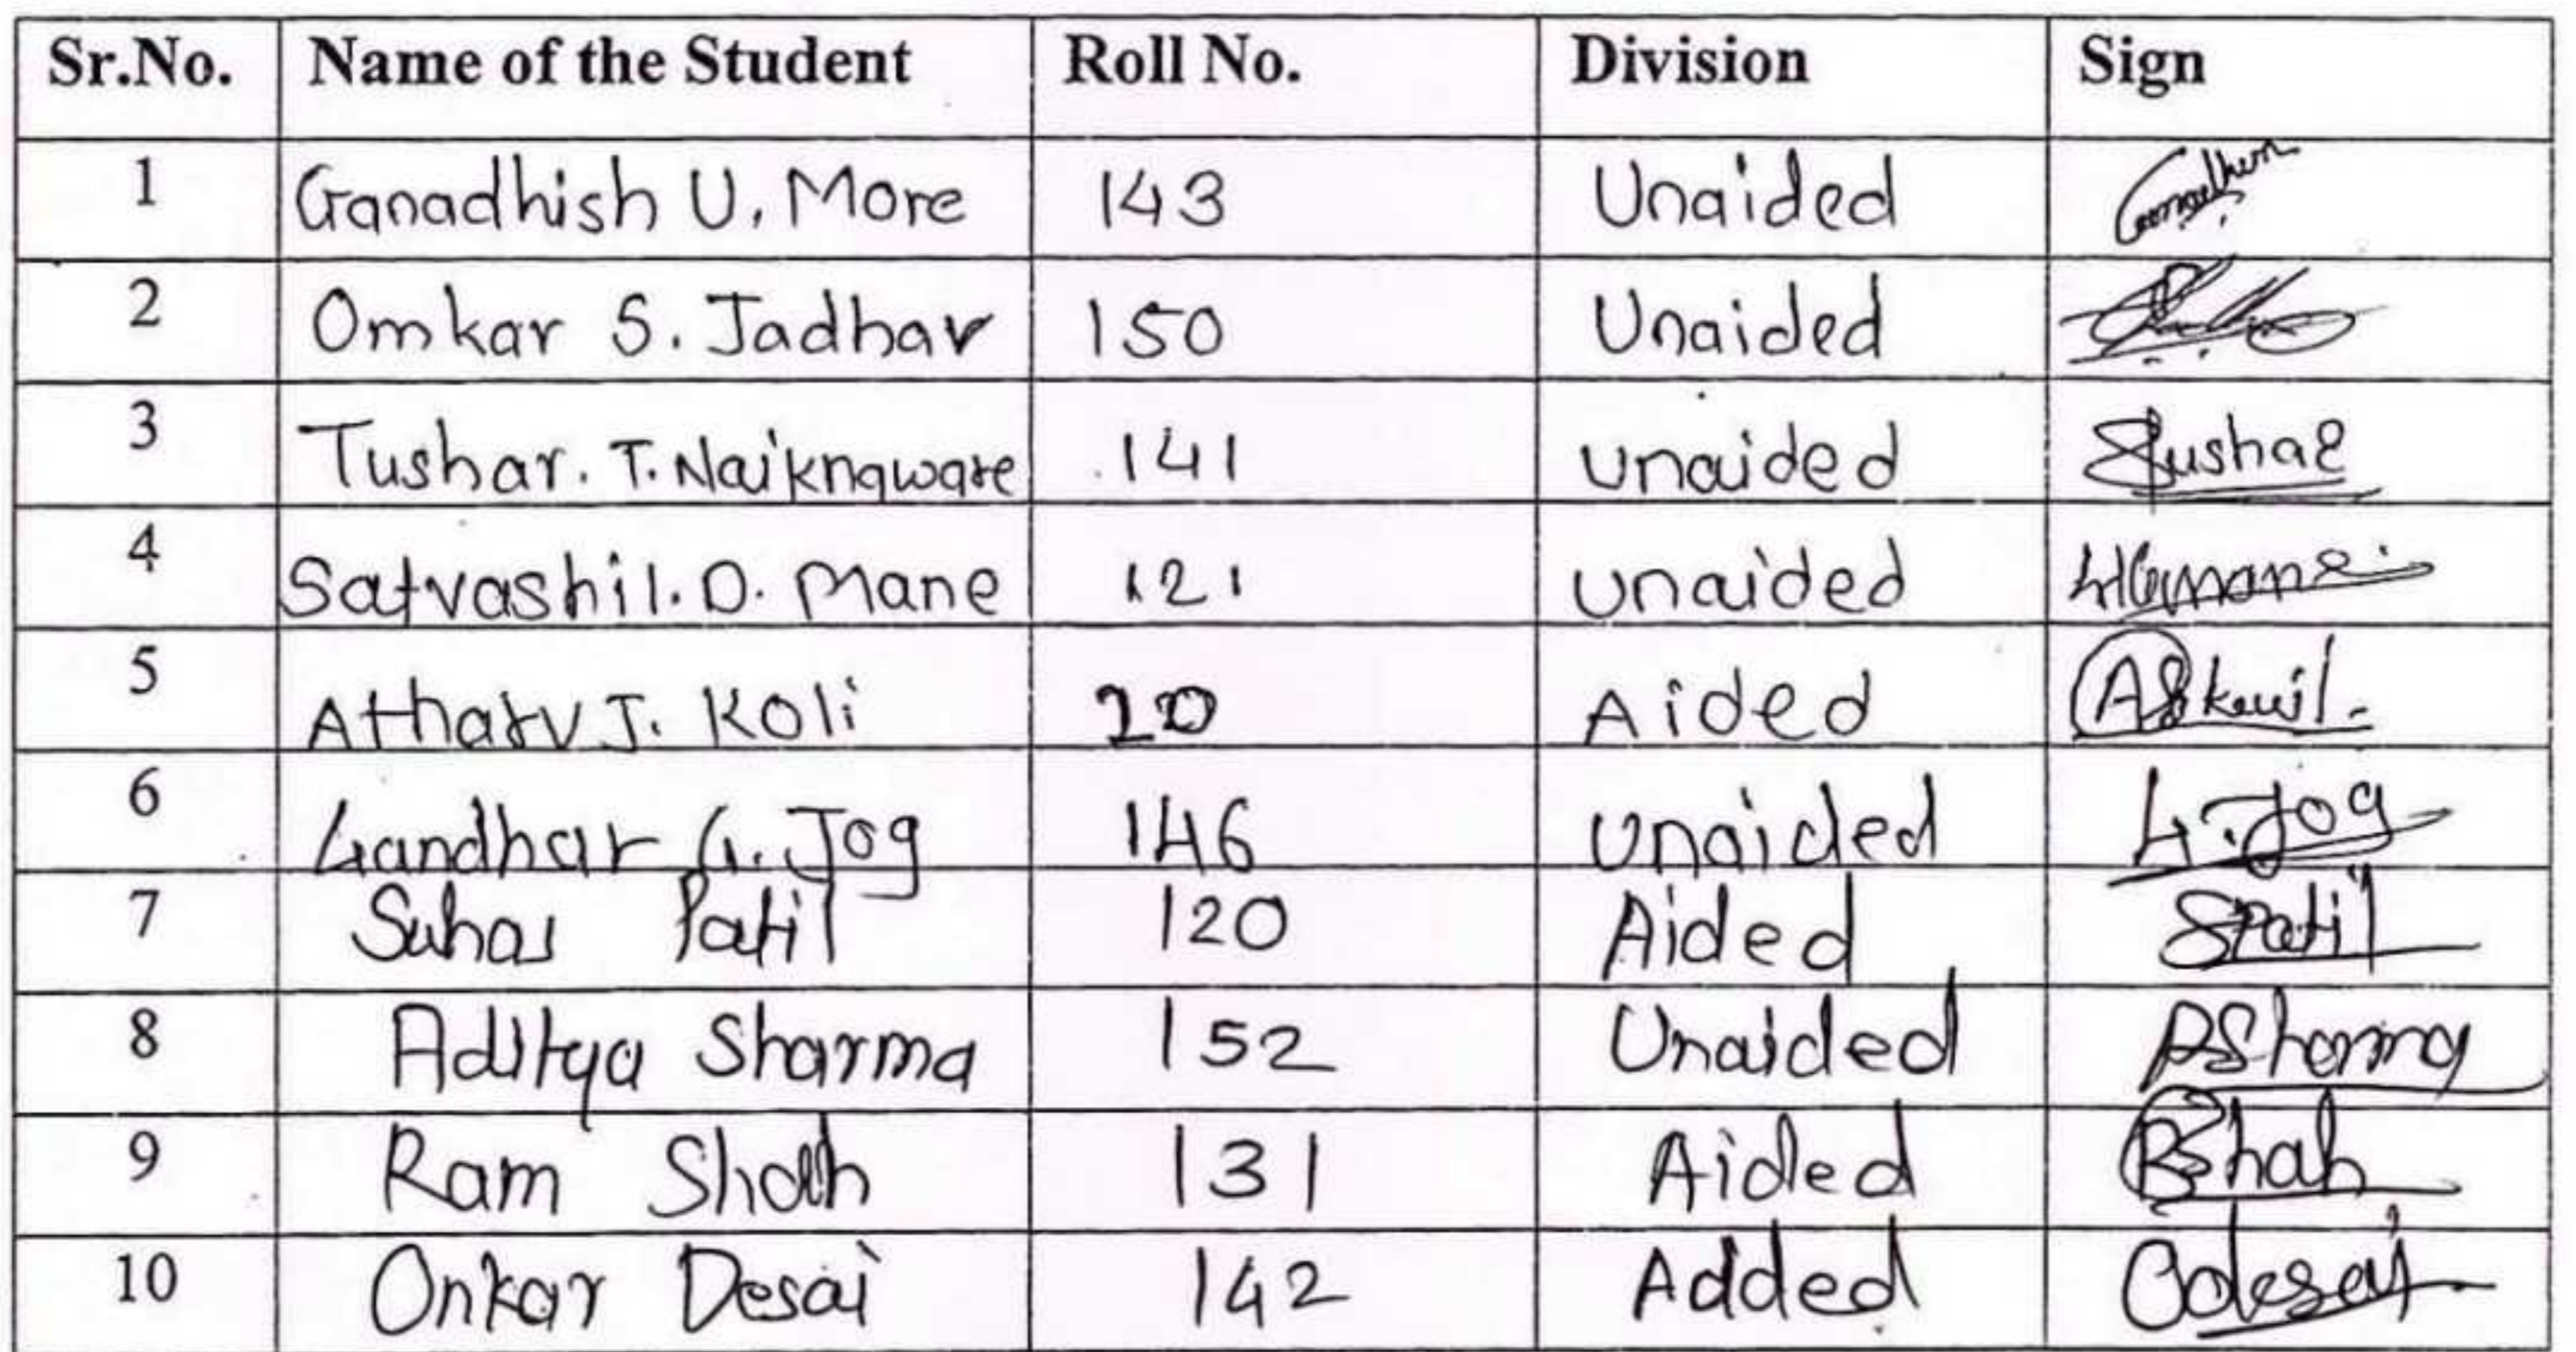 Sr.No. Name of the Student Roll No. Division Sign
1 Ganadhish U. More 143 Unaided
2 Omkar S. Jadhav 150 Unaided
3 Tushar. T. Naiknaware 141 unaided Tushar
4 Satvashil. D. Mane 121 unaided
5 Atharv J. Koli 20 Aided
6 Gandhar G. Jog 146 unaided G. Jog
7 Suhas Patil 120 Aided SPatil
8 Aditya Sharma 152 Unaided ASharma
9 Ram Shah 131 Aided RShah
10 Onkar Desai 142 Added Odesai